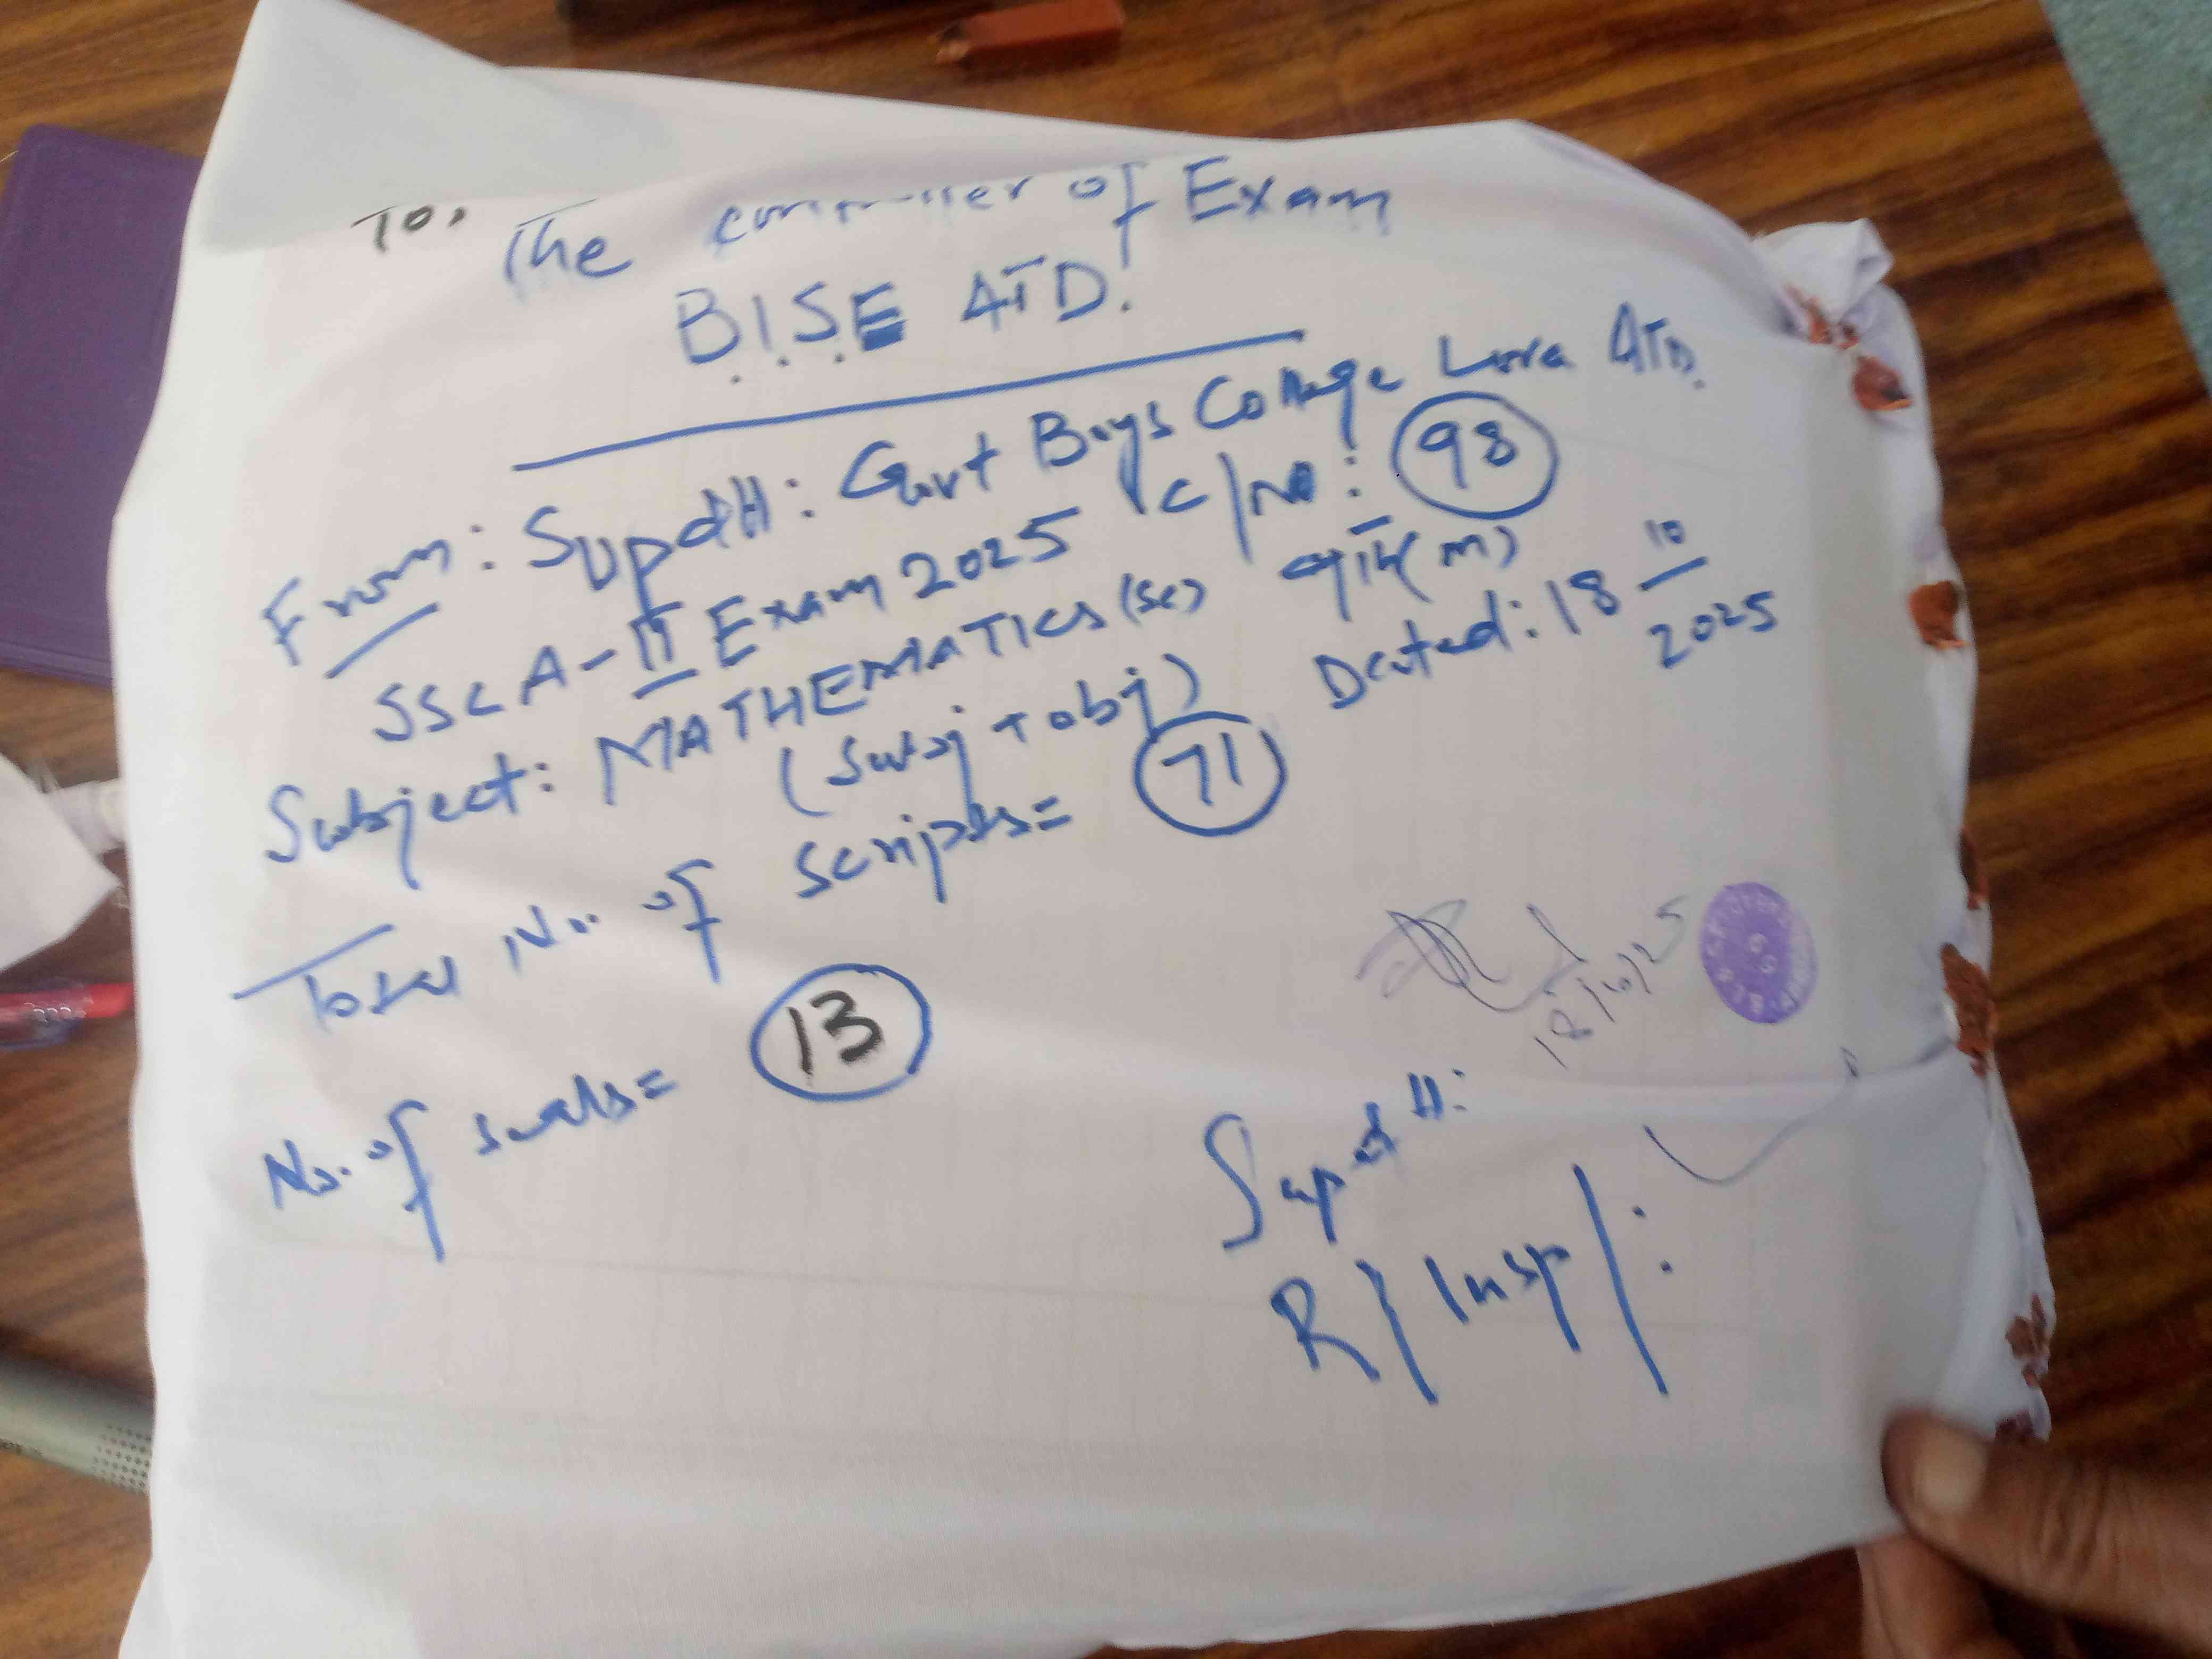 To,
The controller of Exam
B.I.S.E ATD.
From: Supdtt: Govt Boys College Lora ATD.
SSC A-II Exam 2025 C/No: 98
Subject: MATHEMATICS (Sc) 9th (m)
(Subj + obj) Dated: 18 10/2025
Total No. of scripts= 71
No. of seals= 13
18/10/25
Supdtt:
R/Insp/: